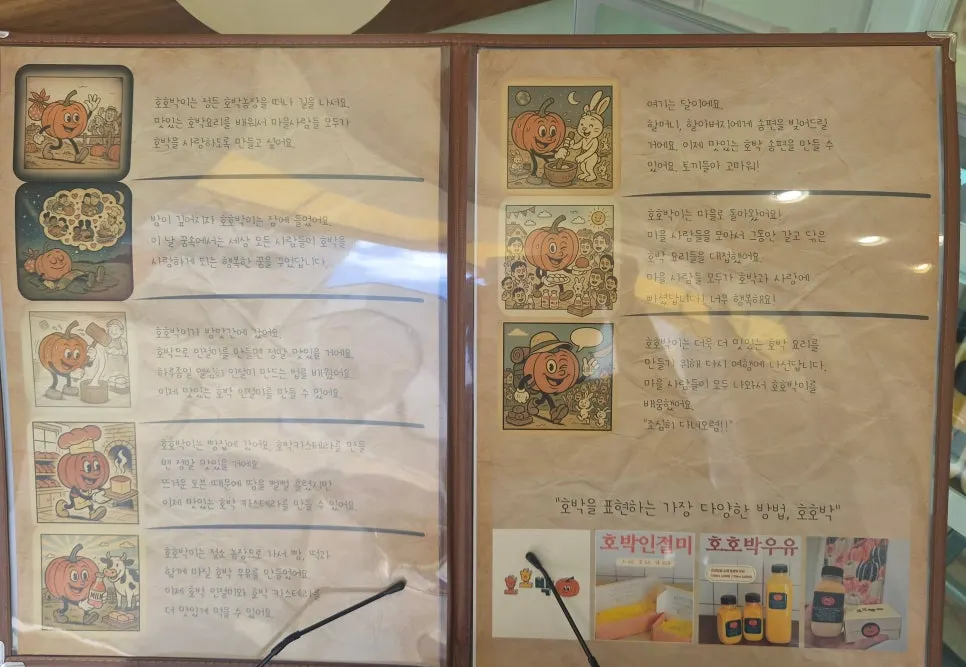 호호박이는 정든 호박농장을 떠나 길을 나서요.
맛있는 호박요리를 배워서 마을사람들 모두가
호박을 사랑하도록 만들고 싶어요.
밤이 깊어지자 호호박이는 잠에 들었어요.
이 날 꿈속에서는 세상 모든 사람들이 호박을
사랑하게 되는 행복한 꿈을 꾸었답니다.
호호박이가 방앗간에 갔어요.
호박으로 인절미를 만들면 정말 맛있을 거에요.
하루종일 열심히 인절미 만드는 법을 배웠어요.
이제 맛있는 호박 인절미를 만들 수 있어요.
호호박이는 빵집에 갔어요. 호박카스테라를 만들
면 정말 맛있을 거에요.
뜨거운 오븐 때문에 땀을 뻘뻘 흘렸지만
이제 맛있는 호박 카스테라를 만들 수 있어요.
호호박이는 젖소 농장으로 가서 빵, 떡과
함께 마실 호박 우유를 만들었어요.
이제 호박 인절미와 호박 카스테라를
더 맛있게 먹을 수 있어요.
MILK
여기는 달이에요.
할머니, 할아버지에게 송편을 빚어드릴
거에요. 이제 맛있는 호박 송편을 만들 수
있어요. 토끼들아 고마워!
호호박이는 마을로 돌아왔어요!
마을 사람들을 모아서 그동안 갈고 닦은
호박 요리들을 대접했어요.
마을 사람들 모두가 호박과 사랑에
빠졌답니다! 너무 행복해요!
호호박이는 더욱 더 맛있는 호박 요리를
만들기 위해 다시 여행에 나선답니다.
마을 사람들이 모두 나와서 호호박이를
배웅했어요.
"조심히 다녀오렴!!"
"호박을 표현하는 가장 다양한 방법, 호호박"
호박인절미
호호박우유